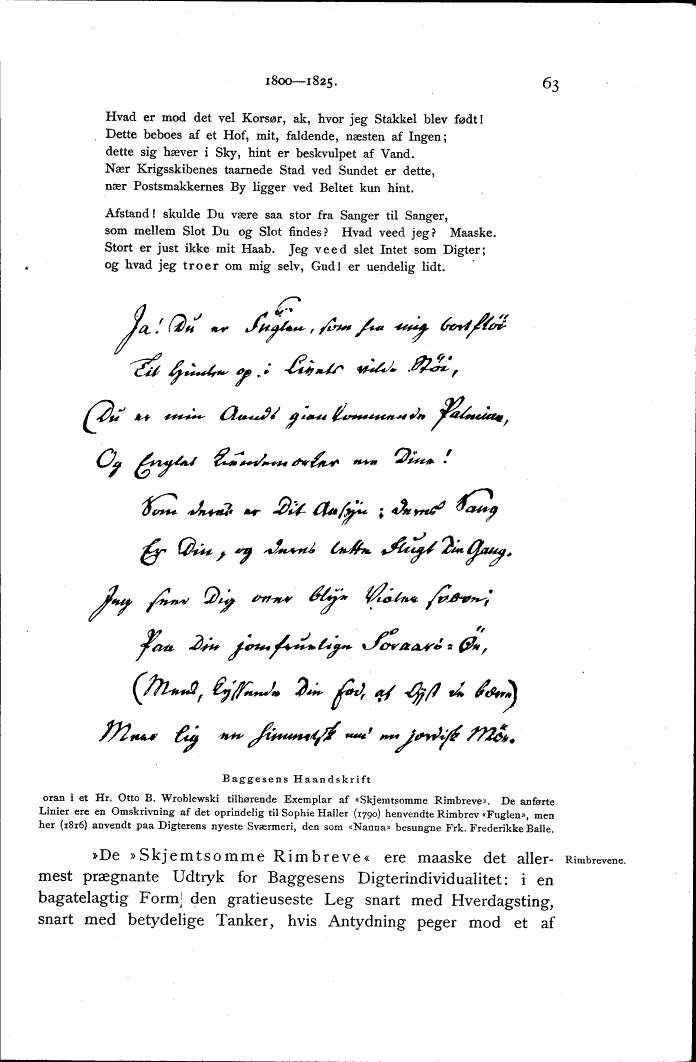 1800—1825.
63
Hvad er mod det vel Korsør, ak, hvor jeg Stakkel blev født!
Dette beboes af et Hof, mit, faldende, næsten af Ingen;
dette sig hæver i Sky, hint er beskvulpet af Vand.
Nær Krigsskibenes taarnede Stad ved Sundet er dette,
nær Postsmakkernes By ligger ved Beltet kun hint.
Afstand! skulde Du være saa stor fra Sanger til Sanger,
som mellem Slot Du og Slot findes? Hvad veed jeg? Maaske.
Stort er just ikke mit Haab. Jeg veed slet Intet som Digter;
og hvad jeg troer om mig selv, Gud! er uendelig lidt.
Ja! Du er Fuglen, som fra mig bortflöi
Til Himlen op i Livets vilde Støi,
(Du er min Aands gienkommende
Og Engles ere Dine!
Som deres er Dit Ansÿn; deres Sang
Er Din, og deres lette Flugt Din Gang.
Jeg seer Dig over blÿe Violer svæve;
Paa Din jomfruelige Foraars-Øe,
(Mens, kÿssende Din Fod, af Lÿst de bæve)
Meer lig en himmelsk end en jordisk Möe.
Baggesens Haandskrift
oran i et Hr. Otto B. Wroblewski tilhørende Exemplar af «Skjemtsomme Rimbreve». De anførte
Linier ere en Omskrivning af det oprindelig til Sophie Haller (1790) henvendte Rimbrev «Fuglen», men
her (1816) anvendt paa Digterens nyeste Sværmeri, den som «Nanna» besungne Frk. Frederikke Balle.
»De »Skjemtsomme Rimbreve« ere maaske det aller-
Rimbrevene.
mest prægnante Udtryk for Baggesens Digterindividualitet: i en
bagatelagtig Form den gratieuseste Leg snart med Hverdagsting,
snart med betydelige Tanker, hvis Antydning peger mod et af